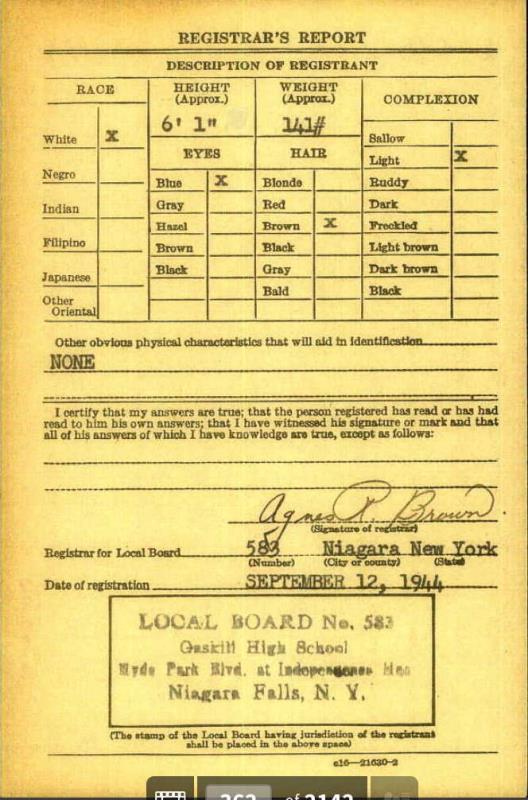 REGISTRAR'S REPORT
DESCRIPTION OF REGISTRANT
RACE
HEIGHT
(Approx.)
WEIGHT
(Approx.)
COMPLEXION
6' 1"
141#
White X
EYES
HAIR
Sallow
Light X
Negro
Blue X
Blonde
Ruddy
Indian
Gray
Red
Dark
Hazel
Brown X
Freckled
Filipino
Brown
Black
Light brown
Japanese
Black
Gray
Dark brown
Other
Oriental
Bald
Black
Other obvious physical characteristics that will aid in identification
NONE
I certify that my answers are true; that the person registered has read or has had
read to him his own answers; that I have witnessed his signature or mark and that
all of his answers of which I have knowledge are true, except as follows:
Agnes R. Brown
(Signature of registrar)
Registrar for Local Board 583 Niagara New York
(Number) (City or county) (State)
Date of registration SEPTEMBER 12, 1944
LOCAL BOARD No. 583
Gaskill High School
Hyde Park Blvd. at Independence
Niagara Falls, N. Y.
(The stamp of the Local Board having jurisdiction of the registrant
shall be placed in the above space)
c16—21630-2
362 of 2142